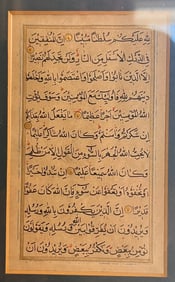 لِلَّهِ عَلَيْكُمْ سُلْطَانًا مُبِينًا إِنَّ الْمُنَافِقِينَ
فِي الدَّرْكِ الْأَسْفَلِ مِنَ النَّارِ وَلَنْ تَجِدَ لَهُمْ نَصِيرًا
إِلَّا الَّذِينَ تَابُوا وَأَصْلَحُوا وَاعْتَصَمُوا بِاللَّهِ وَأَخْلَصُوا
دِينَهُمْ لِلَّهِ فَأُولَئِكَ مَعَ الْمُؤْمِنِينَ وَسَوْفَ يُؤْتِ
اللَّهُ الْمُؤْمِنِينَ أَجْرًا عَظِيمًا مَا يَفْعَلُ اللَّهُ بِعَذَابِكُمْ
إِنْ شَكَرْتُمْ وَآمَنْتُمْ وَكَانَ اللَّهُ شَاكِرًا عَلِيمًا
لَا يُحِبُّ اللَّهُ الْجَهْرَ بِالسُّوءِ مِنَ الْقَوْلِ إِلَّا مَنْ ظُلِمَ
وَكَانَ اللَّهُ سَمِيعًا عَلِيمًا إِنْ تُبْدُوا خَيْرًا
أَوْ تُخْفُوهُ أَوْ تَعْفُوا عَنْ سُوءٍ فَإِنَّ اللَّهَ كَانَ عَفُوًّا
قَدِيرًا إِنَّ الَّذِينَ يَكْفُرُونَ بِاللَّهِ وَرُسُلِهِ
وَيُرِيدُونَ أَنْ يُفَرِّقُوا بَيْنَ اللَّهِ وَرُسُلِهِ وَيَقُولُونَ
نُؤْمِنُ بِبَعْضٍ وَنَكْفُرُ بِبَعْضٍ وَيُرِيدُونَ أَنْ